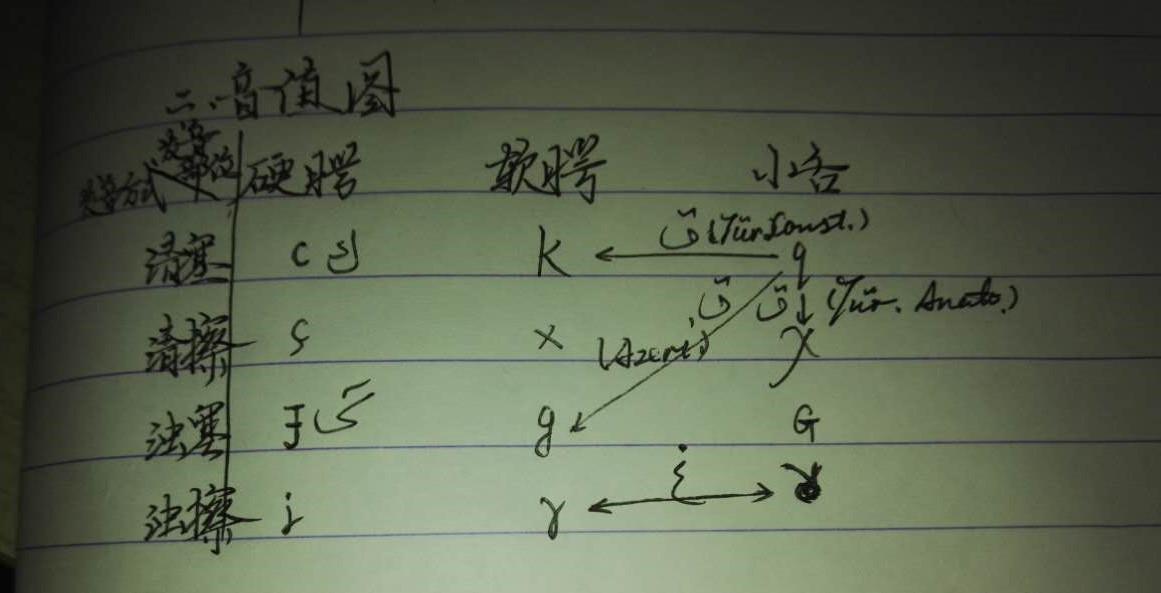 二、音值图
发音部位
发音方式 硬腭 软腭 小舌
清塞 c ك k ق (Tür. Const.) q
清擦 ç x ق ق (Tür. Anato.) χ
(Azeri.)
浊塞 ɟ گ g G
浊擦 j ɣ غ